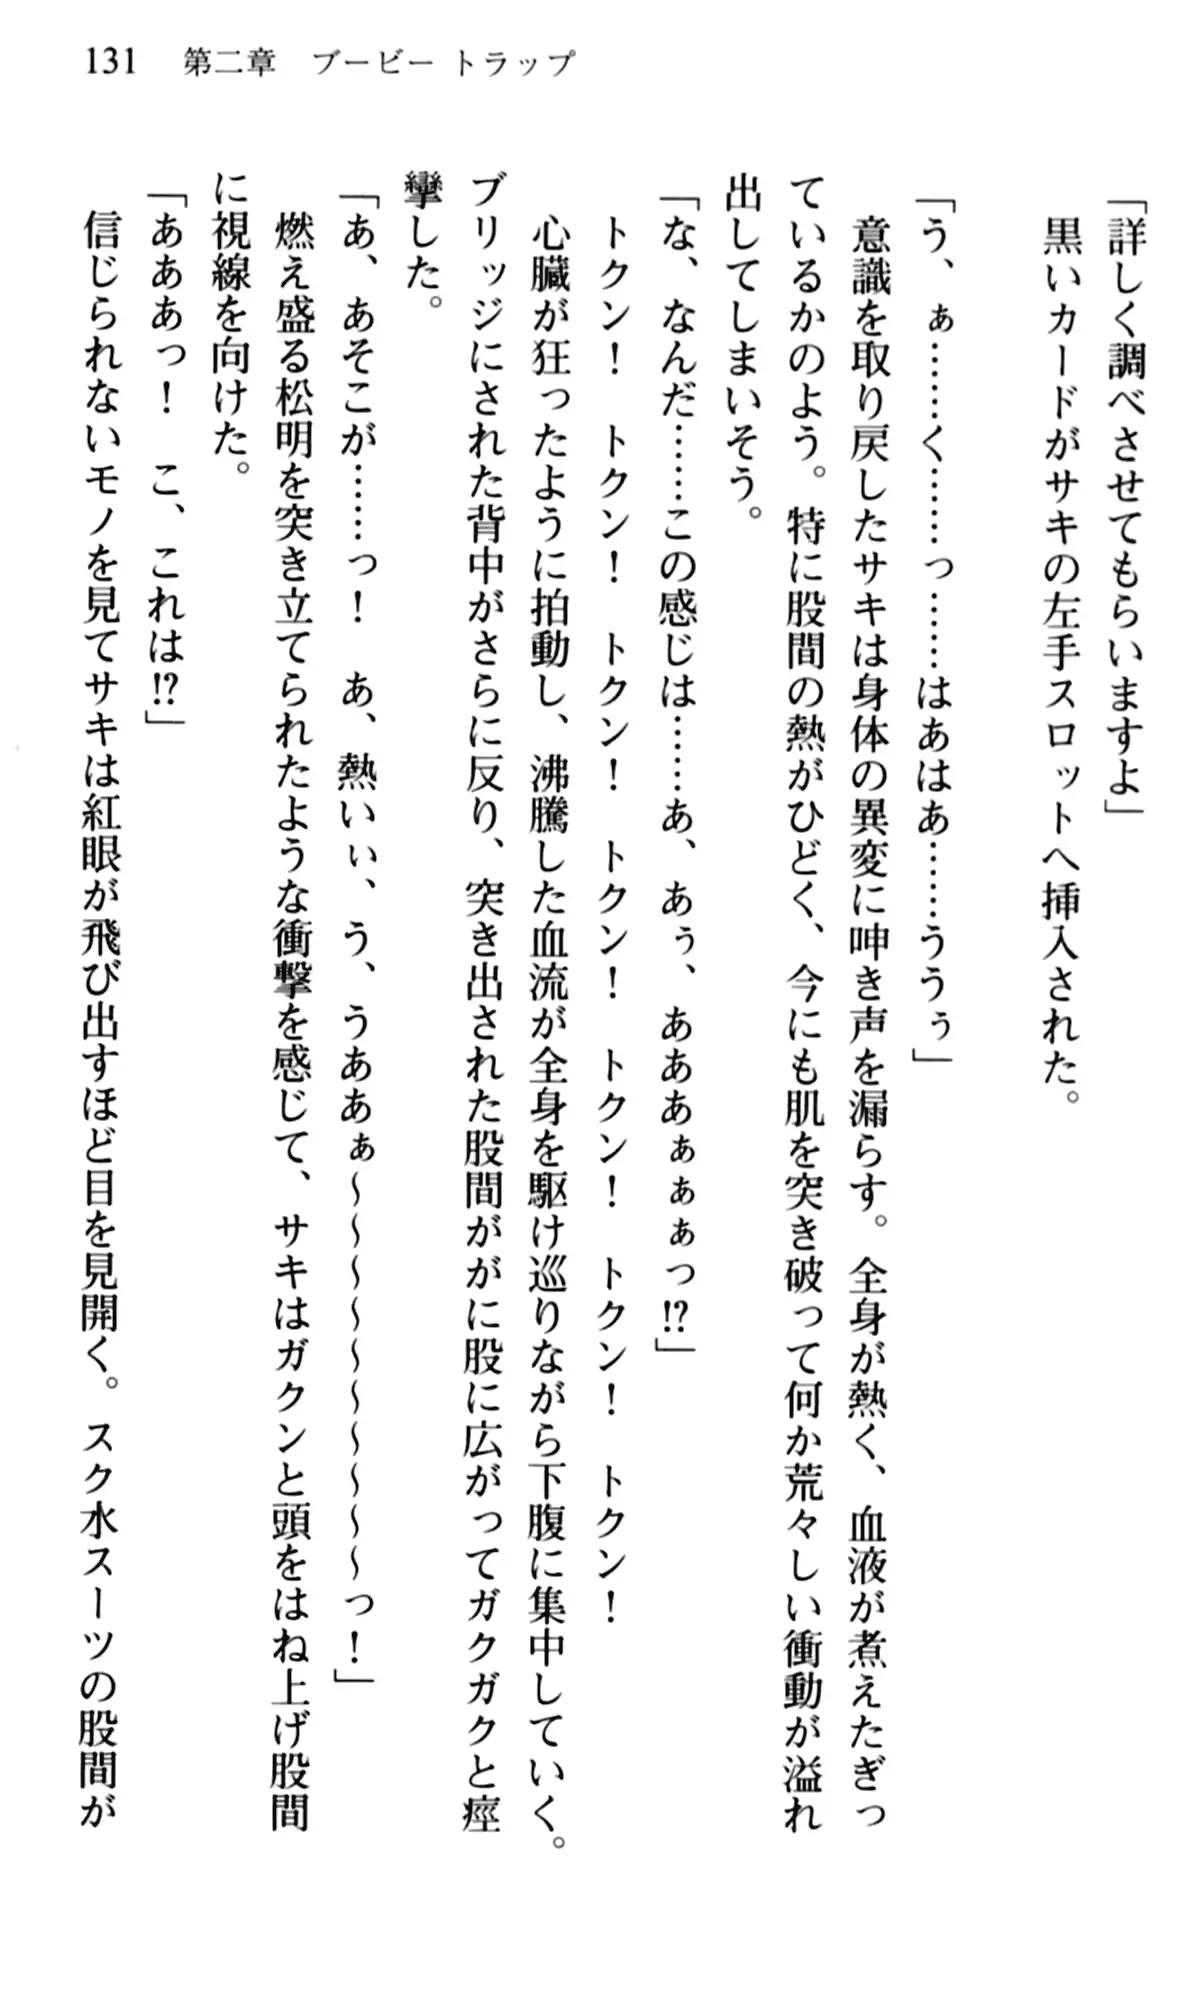 131 第二章 ブービー トラップ
「詳しく調べさせてもらいますよ」
黒いカードがサキの左手スロットへ挿入された。
「う、ぁ……く……っ……はあはあ……ううぅ」
意識を取り戻したサキは身体の異変に呻き声を漏らす。全身が熱く、血液が煮えたぎっ
ているかのよう。特に股間の熱がひどく、今にも肌を突き破って何か荒々しい衝動が溢れ
出してしまいそう。
「な、なんだ……この感じは……あ、あぅ、あああぁぁぁっ!?」
トクン！　トクン！　トクン！　トクン！　トクン！　トクン！　トクン！
心臓が狂ったように拍動し、沸騰した血流が全身を駆け巡りながら下腹に集中していく。
ブリッジにされた背中がさらに反り、突き出された股間ががに股に広がってガクガクと痙
攣した。
「あ、あそこが……っ！　あ、熱いぃ、う、うああぁ～～～～～～～～～～っ！」
燃え盛る松明を突き立てられたような衝撃を感じて、サキはガクンと頭をはね上げ股間
に視線を向けた。
「あああっ！　こ、これは!?」
信じられないモノを見てサキは紅眼が飛び出すほど目を見開く。スク水スーツの股間が